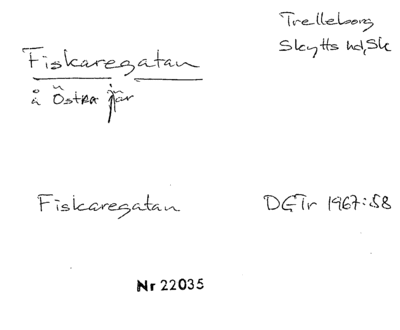 Trelleborg
Skytts hd, Sk
Fiskaregatan
å Östra
Fiskaregatan DGTr 1967:58
Nr 22035